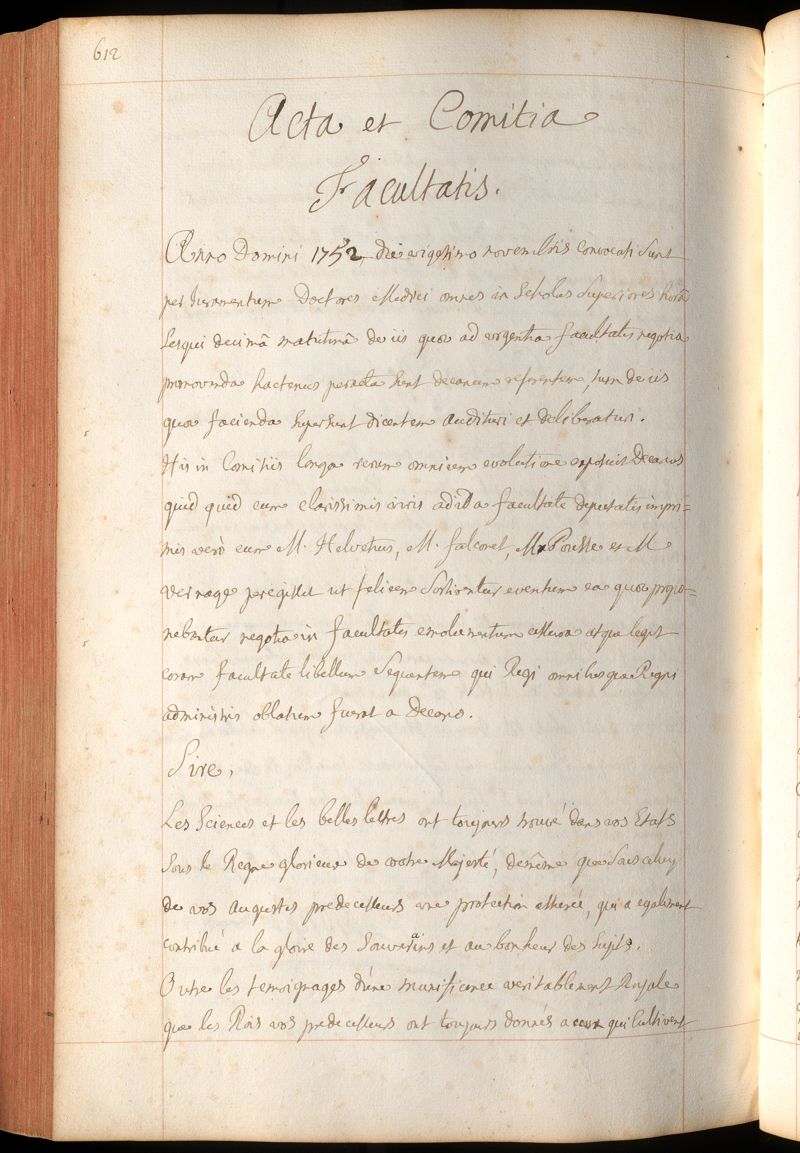 612
Acta et Comitia
Facultatis.
Anno Domini 1752, die vigesimo novembris convocati sunt
per Juramentum Doctores Medici omnes in Scholas Superiores horâ
sesqui decimâ matutinâ de iis quae ad urgentia facultatis negotia
promovenda hactenus peracta sunt decanum referentem, tum de iis
quae facienda supersunt dicentem audituri et deliberaturi.
His in Comitiis longa rerum omnium evolutione exposuit Decanus
quid quid cum clarissimis viris ad id a facultate deputatis impri=
mis verò cum M. Helvetius, M. falconet, M. Pousse et M
vernage peregisset ut felicem sortirentur eventum ea quae propo=
nebantur negotia in facultatis emolumentum cessura atque legit
coram facultate libellum sequentem qui Regi omnibusque Regni
administris oblatum fuerat a Decano.
Sire,
Les Sciences et les belles lettres ont toujours trouvé dans vos Etats
sous le Regne glorieux de votre Majesté, de même que sous celuy
de vos augustes predecesseurs une protection assurée, qui a egalement
contribué a la gloire des Souverains et au bonheur des Sujets.
Outre les temoignages d'une munificence veritablement Royale
que les Rois vos predecesseurs ont toujours donnés a ceux qui Cultivent